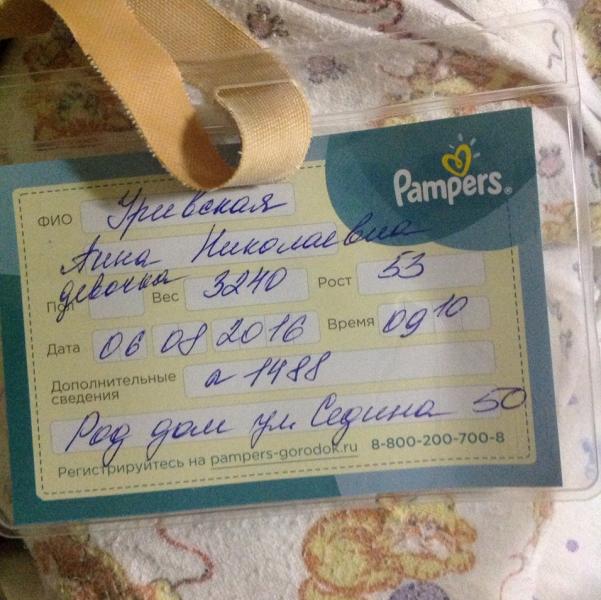 Pampers®
ФИО Гривская
Анна Николаевна
Пол девочка Вес 3240 Рост 53
Дата 06 08 2016 Время 09 10
Дополнительные сведения 1488
Род дом ул Седина 50
Регистрируйтесь на pampers-gorodok.ru 8-800-200-700-8